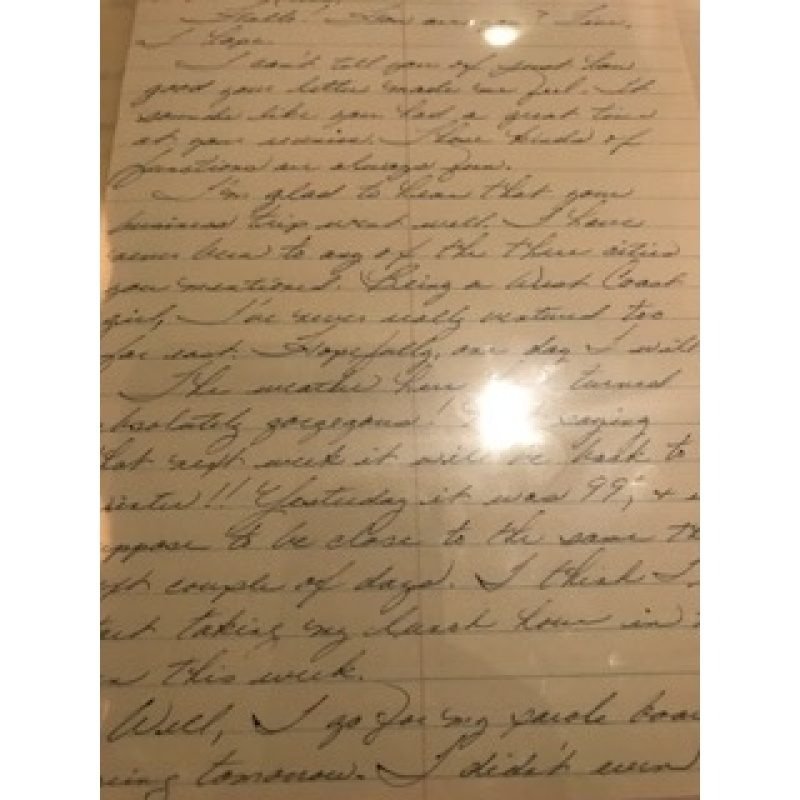 Hello! How are you? Fine,
I hope.
I can't tell you of just how
good your letter made me feel. It
sounds like you had a great time
at your reunion. Those kinds of
functions are always fun.
I'm glad to hear that your
business trip went well. I have
never been to any of the three cities
you mentioned. Being a West Coast
girl, I've never really ventured too
far east. Hopefully, one day I will
The weather here turned
absolutely gorgegous! saying
that next week it will be back to
winter!! Yesterday it was 99°, +
suppose to be close to the same
next couple of days. I think
start taking my lunch hour in
this week.
Well, I go for my parole
tomorrow. I didn't even